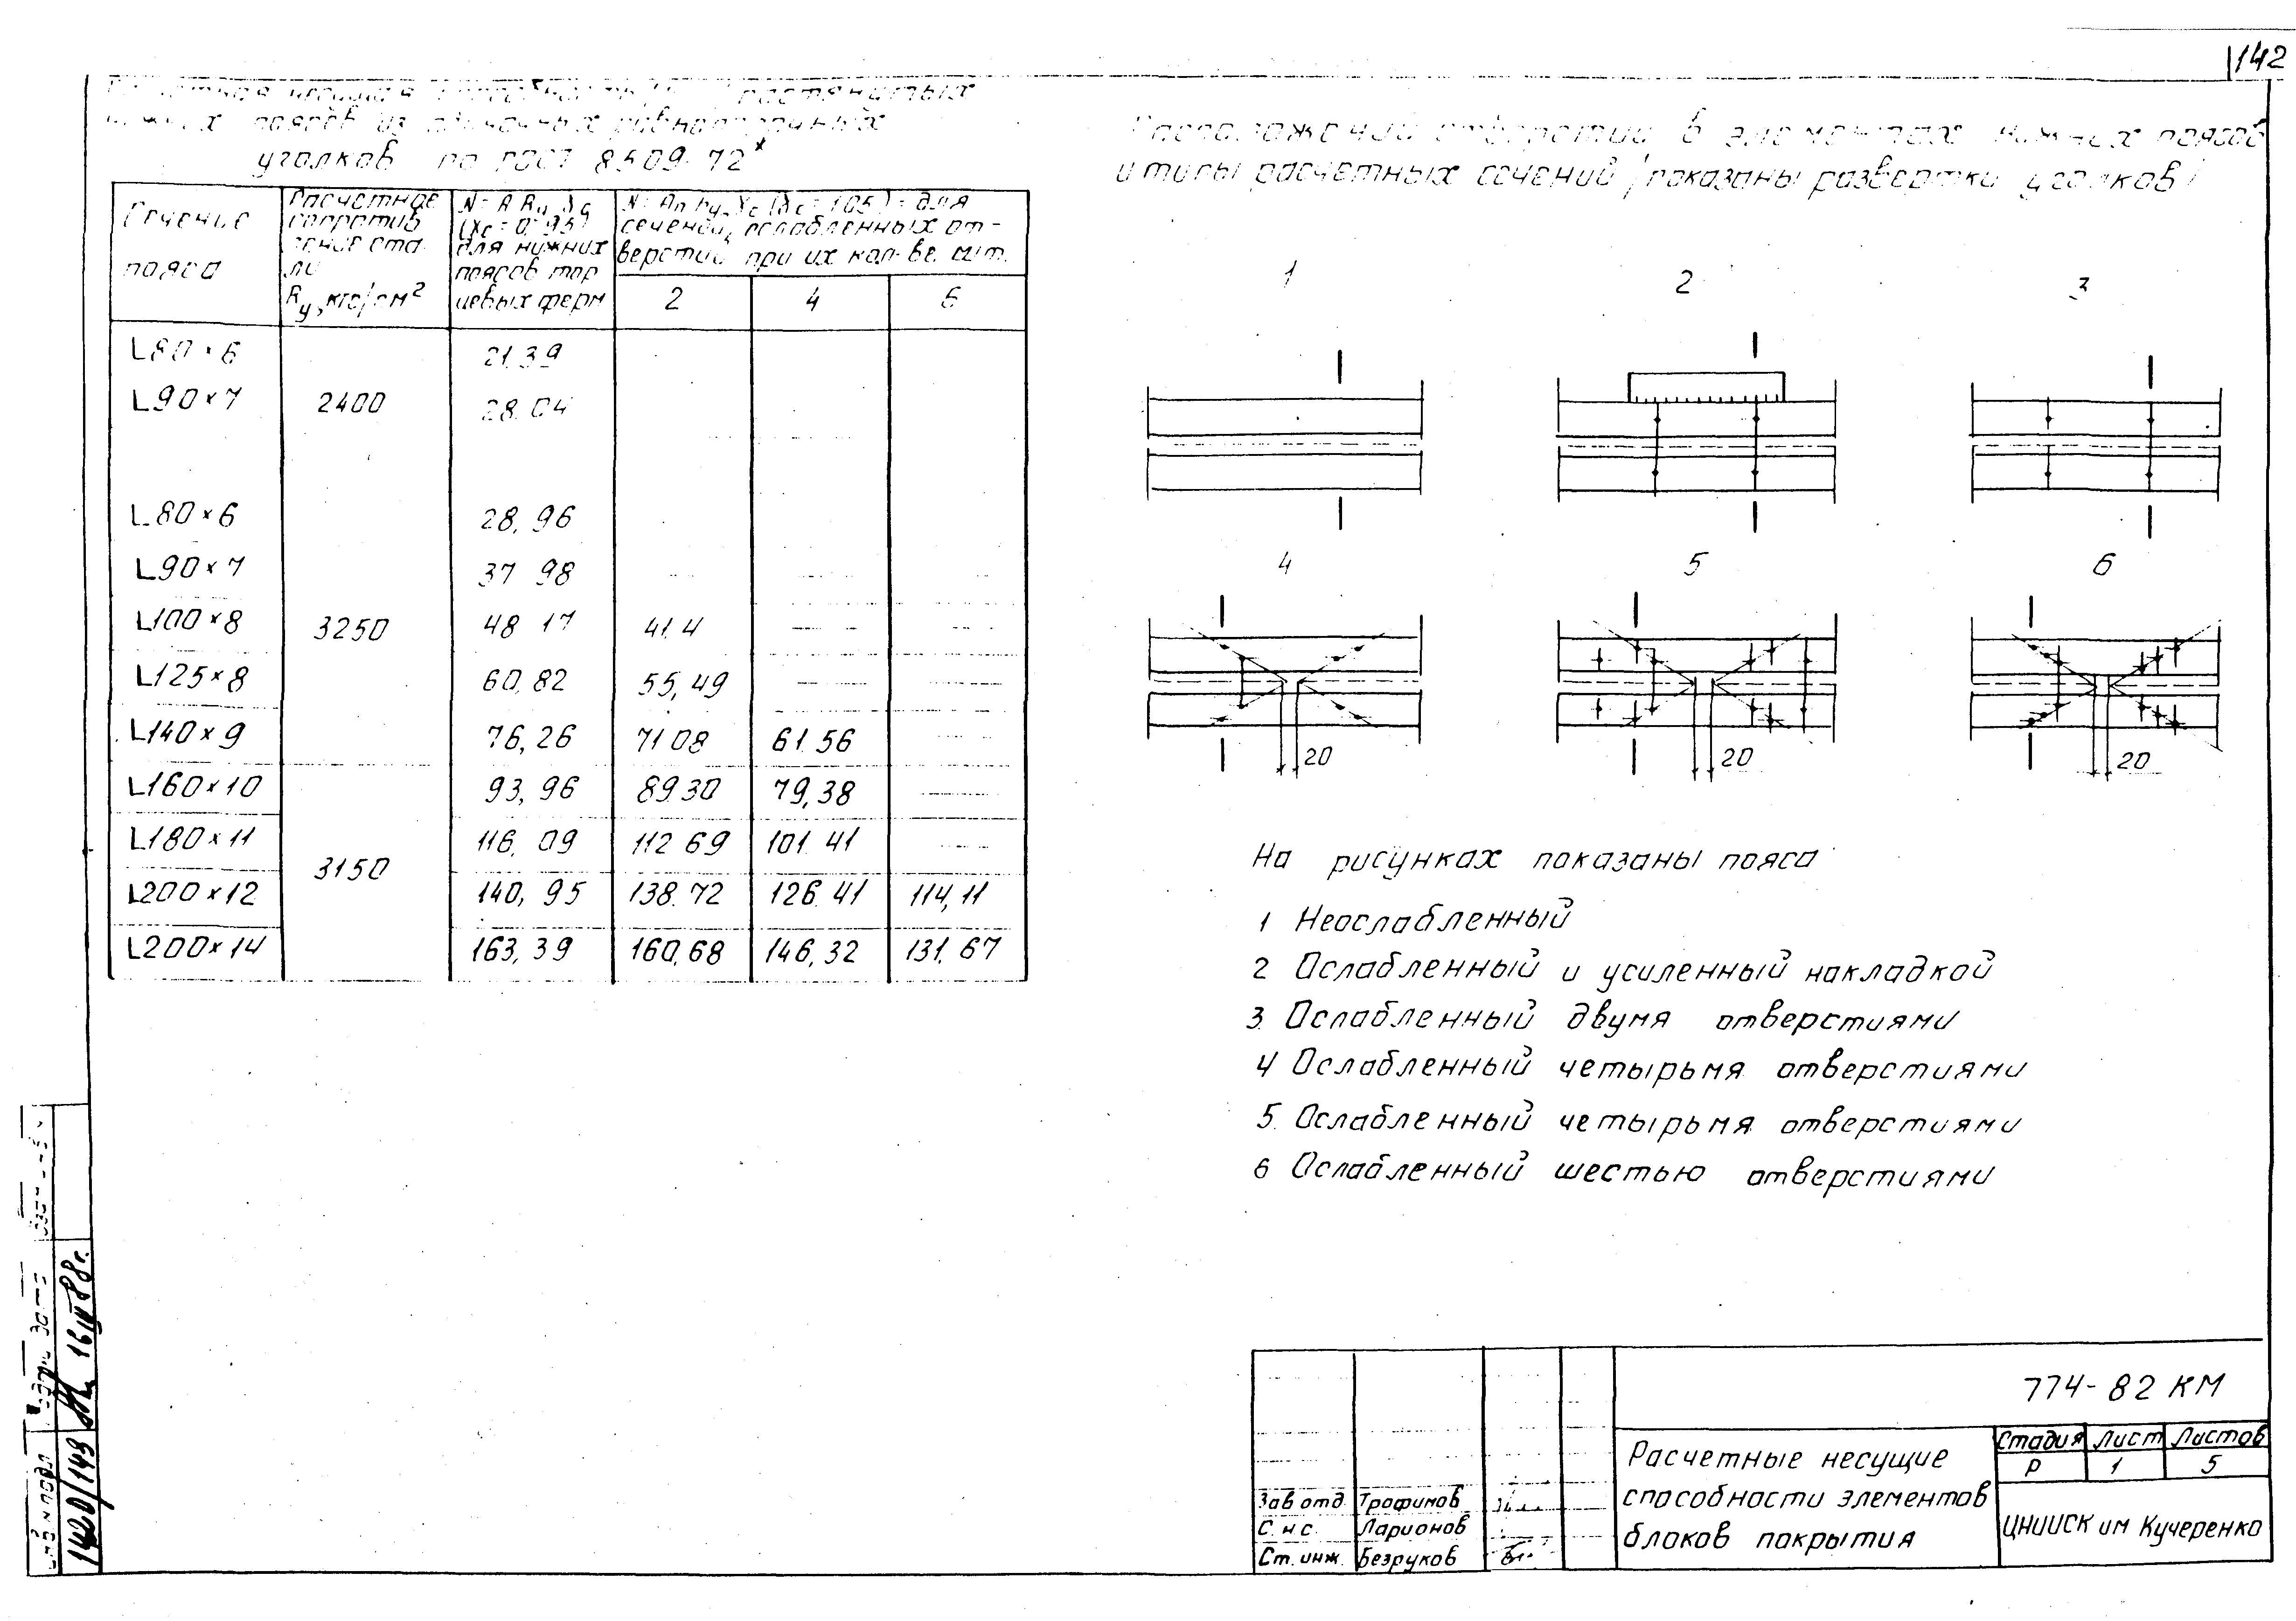 142
растянутых
поясов из
уголков по ГОСТ 8509-72*
Расположение отверстий в элементах нижних поясов
и типы расчетных сечений /показаны развертки уголков/
Сечение
пояса
Расчетное
сопротив
ление ста
ли
Ry, кгс/см²
N = A Ry γc
(γc = 0.95)
для нижних
поясов тор
цевых ферм
N = Aп Ry γc (γc = 1.05) - для
сечений, ослабленных от-
верстий при их кол-ве шт.
2 4 6
L80×6 21.39
L90×7 2400 28.04
L80×6 28,96
L90×7 37 98
L100×8 3250 48 17 41.4
L125×8 60,82 55,49
L140×9 76,26 71 08 61.56
L160×10 93,96 89.30 79,38
L180×11 116,09 112 69 101.41
3150
L200×12 140,95 138.72 126.41 114,11
L200×14 163,39 160,68 146,32 131.67
1 2 3
4 5 6
20 20 20
На рисунках показаны пояса
1 Неослабленный
2 Ослабленный и усиленный накладкой
3. Ослабленный двумя отверстиями
4 Ослабленный четырьмя отверстиями
5. Ослабленный четырьмя отверстиями
6 Ослабленный шестью отверстиями
774-82 КМ
Расчетные несущие
способности элементов
блоков покрытия
Стадия Лист Листов
Р 1 5
ЦНИИСК им Кучеренко
Зав отд. Трофимов
С.н.с. Ларионов
Ст. инж. Безруков
Инв N подл
1420/143
16 IV 88г.